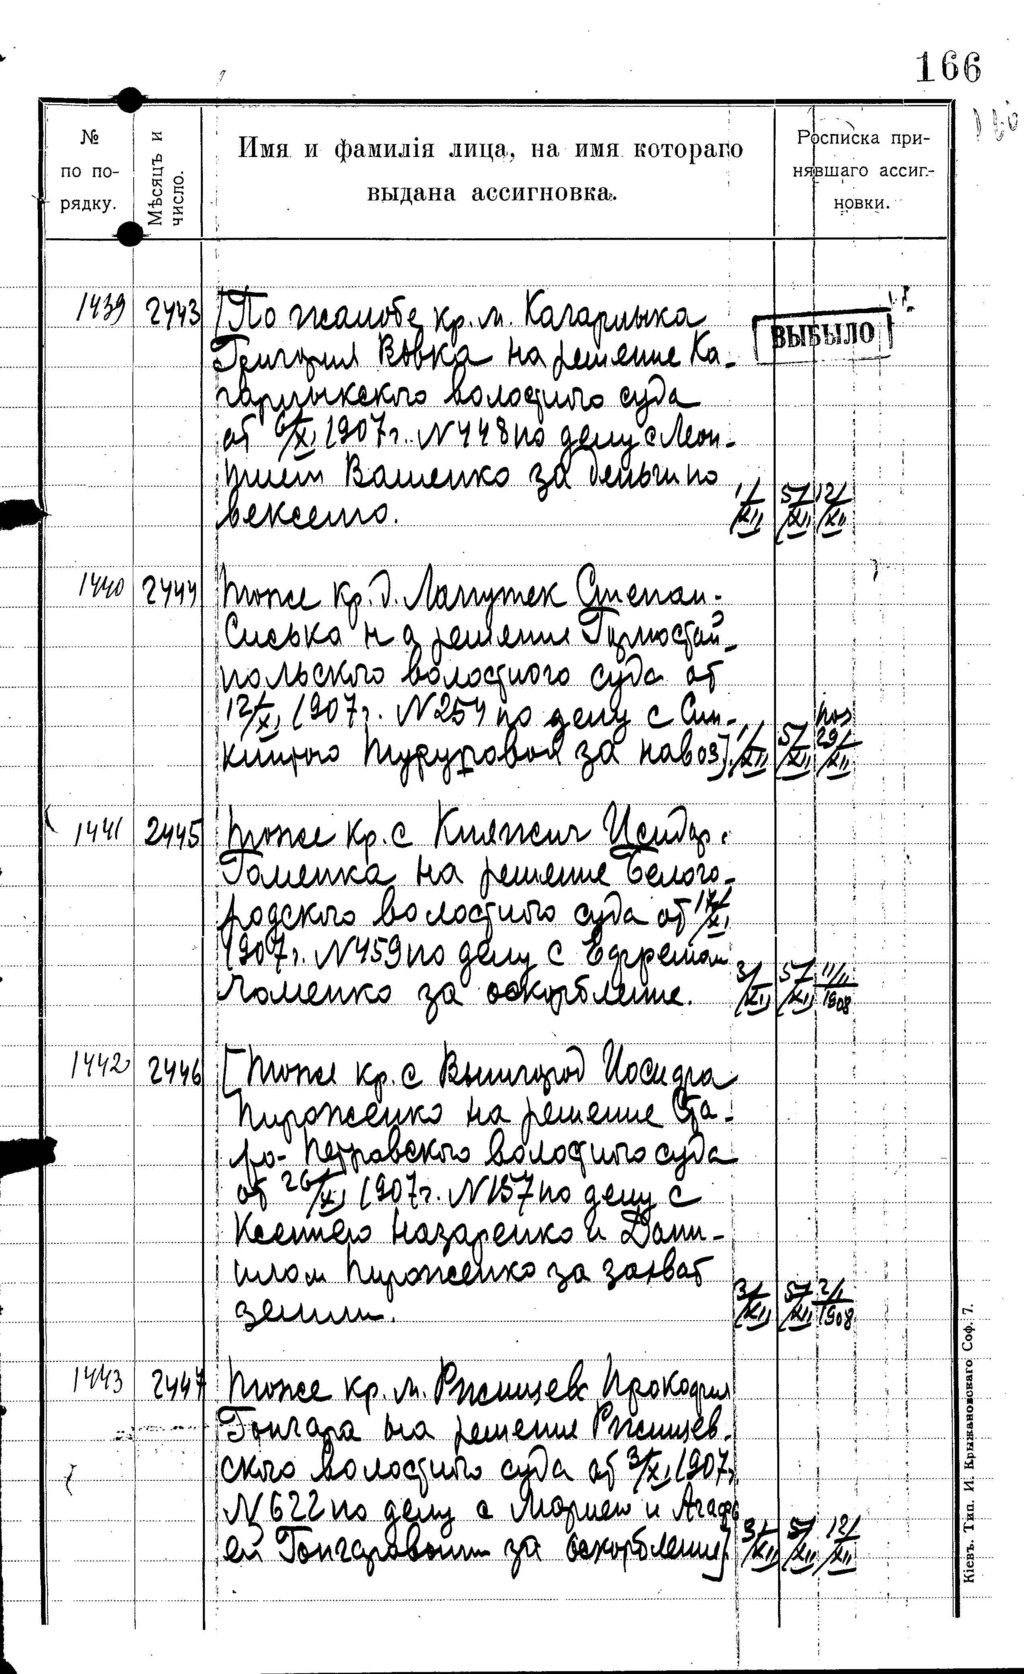 166
№ по по- рядку.
Мѣсяцъ и число.
Имя и фамилія лица, на имя котораго
выдана ассигновка.
Росписка при-
нявшаго ассиг-
новки.
1439 2443 [По жалобе кр. м. Кагарлыка
Григория Вовка на решение Ка-
гарлыкского волостного суда
от 6/XI 1907 г. N 448 по делу с Леон-
тием Ващенко за деньги по
векселю. 1/XII 5/XII 12/XII
ВЫБЫЛО
1440 2444 тоже кр. д. Лапутек Степан.
на решение Горностай-
польского волостного суда от
12/XI 1907 г. N 254 по делу с
за навоз]. 1/XII 5/XII 29/XII
1441 2445 тоже кр. с Княжич Исидор.
Гоменка на решение Белого-
родского волостного суда от 17/XI
1907 г. N 459 по делу с Ефремом
Хоменко за оскорбление. 3/XII 5/XII 11/II 1908
1442 2446 [тоже кр. с Вышгород
Пироженко на решение Ста-
ро-Петровского волостного суда
от 26/XI 1907 г. N 157 по делу с
Ксенией Назаренко и Дани-
илом Пироженко за захват
земли. 3/XII 5/XII 2/I 1908
1443 2447 тоже кр. м. Ржищев Прокофия
Гончара на решение Ржищев-
ского волостного суда от 3/XI 1907 г.
N 622 по делу с Марией и Агафь
ей Гончаровыми за оскорбление] 3/XII 5/XII 12/XII
Кіевъ. Тип. И. Крыжановскаго Соф. 7.